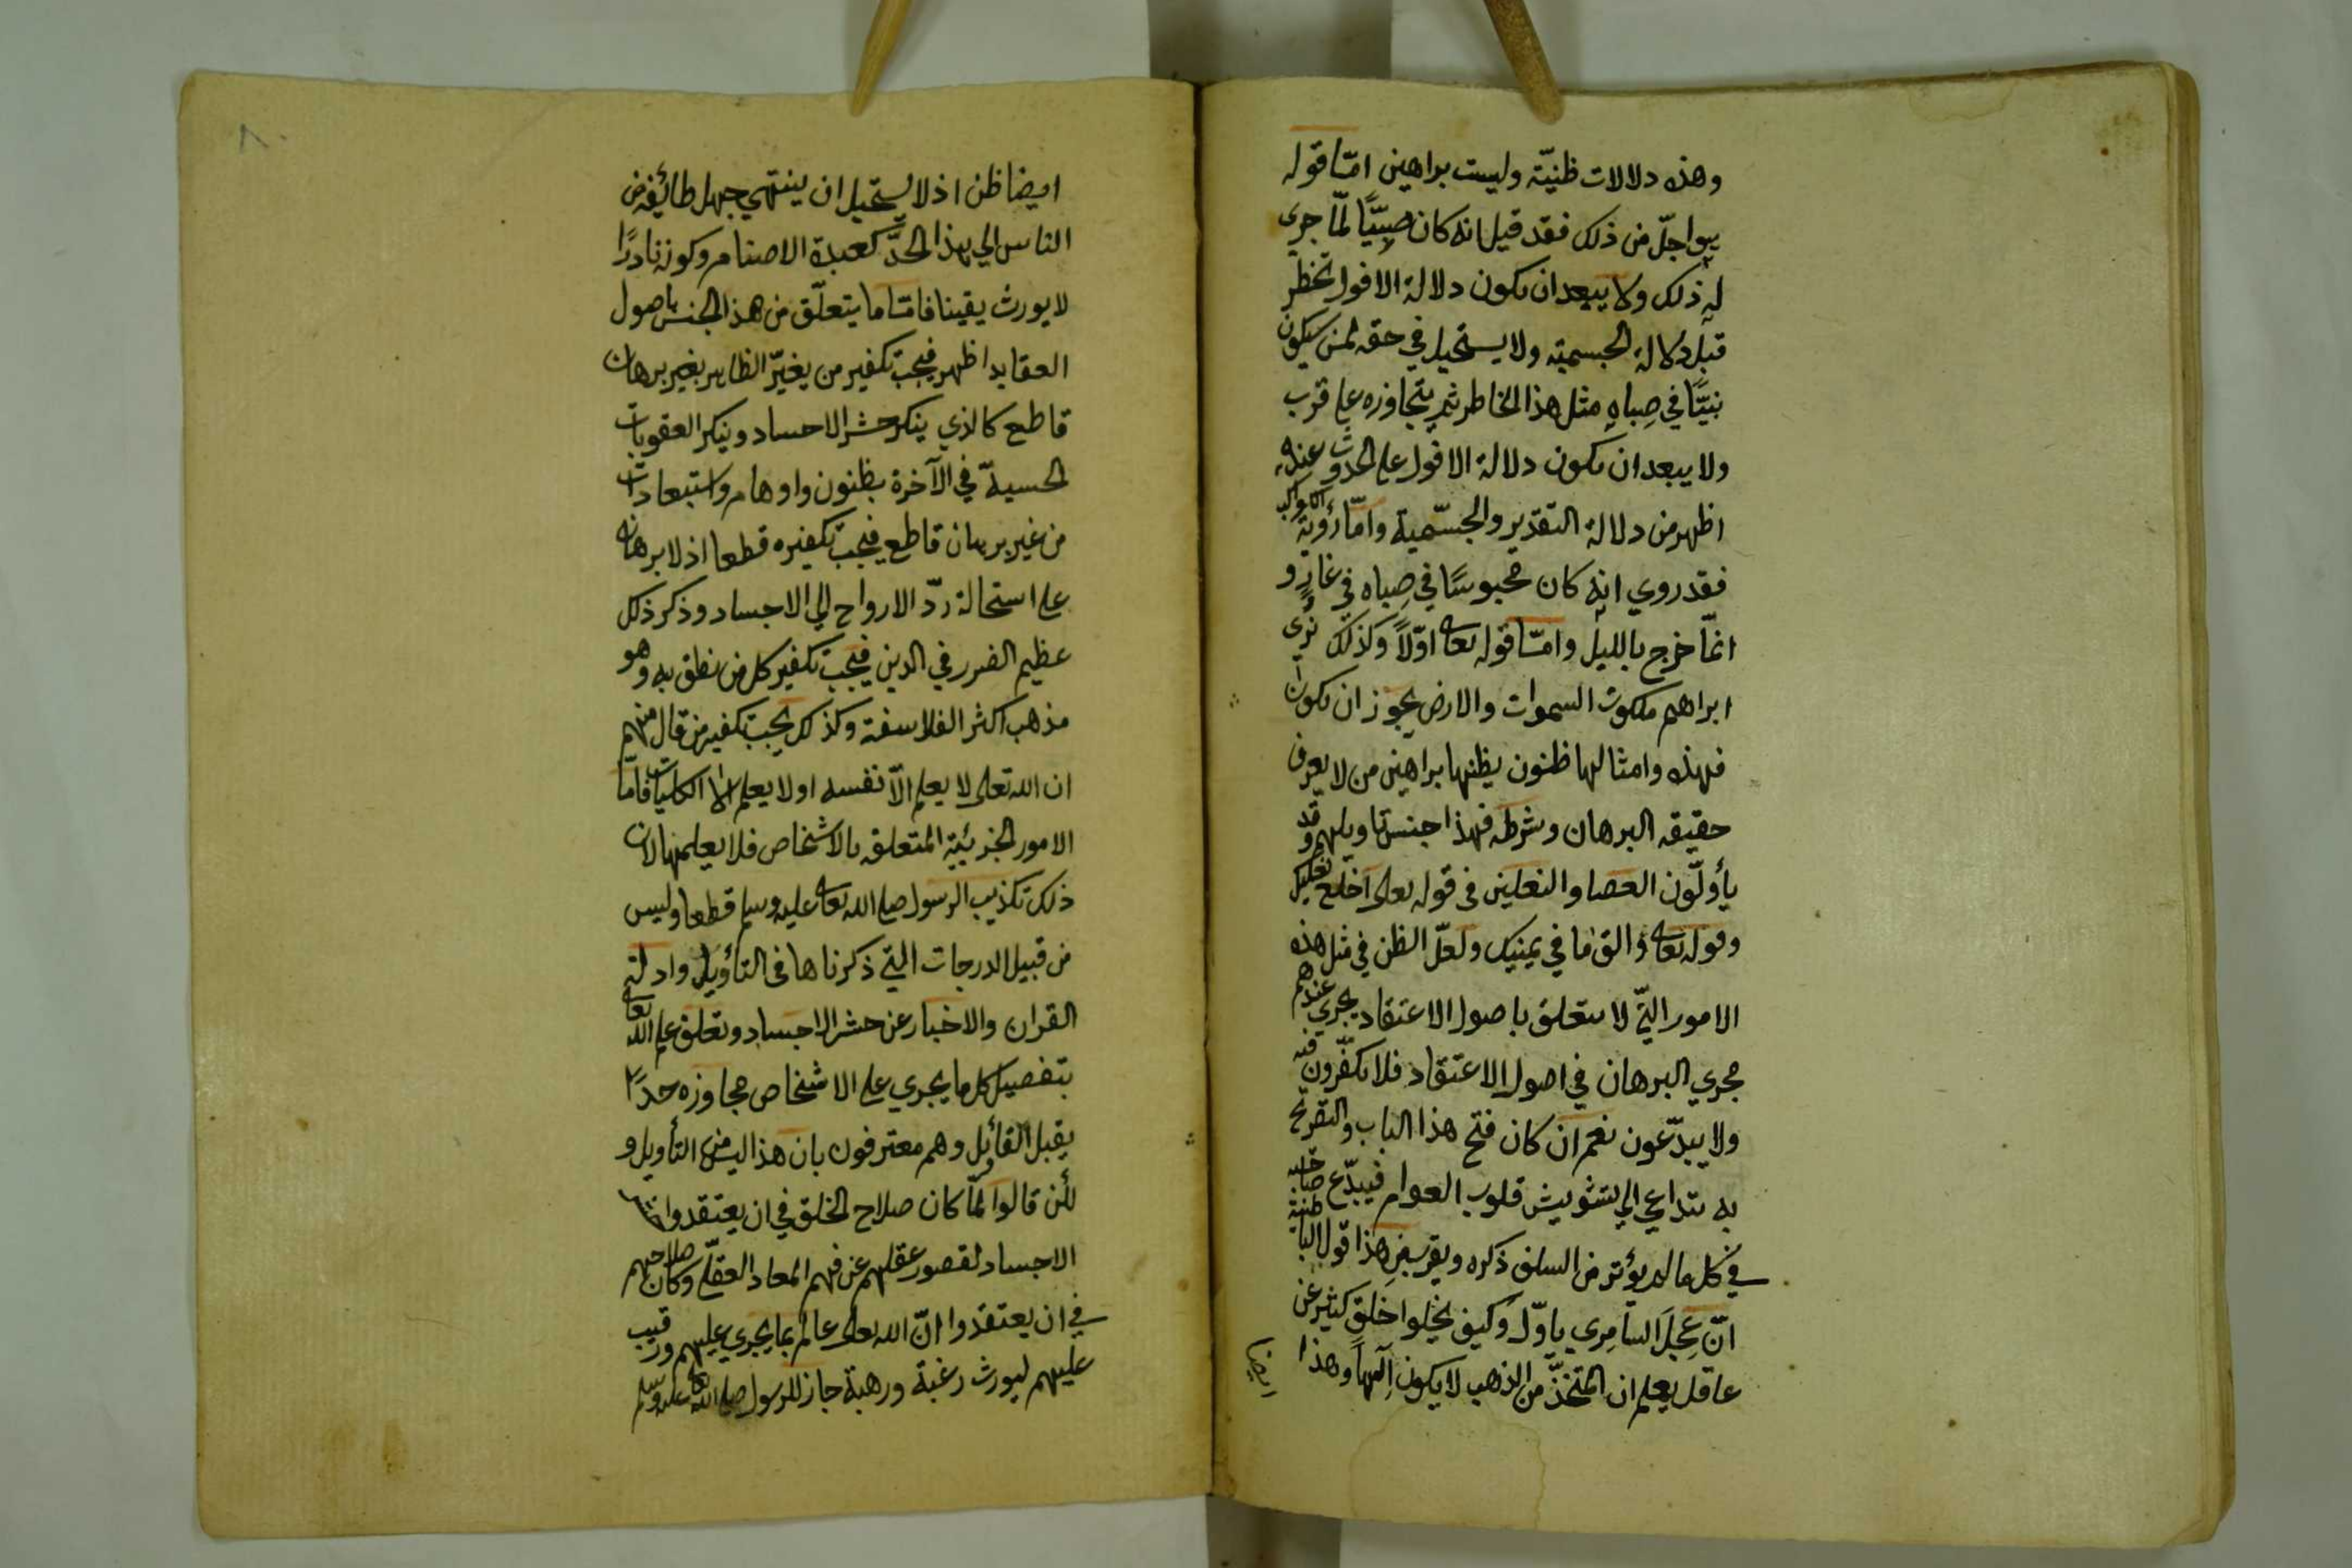 وهذه دلالات ظنيّة وليست براهين امّا قوله
هو اجلّ من ذلك فقد قيل انه كان صبيًّا لمّا جرى
له ذلك ولا يبعد ان يكون دلالة الافول تخطر
قبل دلالة الجسمية ولا يستحيل في حقه لمن سيكون
نبيًّا في صِباهِ مثل هذا الخاطر ثم يتجاوزه على قرب
ولا يبعد ان يكون دلالة الافول على الحدوث عنده
اظهر من دلالة التقدير والجسّمية وامّا رؤية الكواكب
فقد روي انه كان محبوسًا في صِباه في غارٍ و
انمّا خرج بالليل وامّا قوله تعالى اوّلاً وكذلك نُرى
ابراهيم ملكوت السموات والارض يجوز ان يكون
فهذه وامثالها ظنون يظنها براهين من لا يعرف
حقيقه البرهان وشرطه فهذا جنس تاويلهم وقد
يأولّون العصا والنعلين في قوله تعالى اخلع نعليك
وقوله تعالى والق ما في يمينك ولعلّ الظن في مثل هذه
الامور التيّ لا يتعلق باصول الاعتقاد يجري عندهم
مجري البرهان في اصول الاعتقاد فلا يكفّرون فيه
ولا يبدّعون نعم ان كان فتح هذا الباب والتصريح
به يتداعي الي تشويش قلوب العوام فيبدّع صاحبه
في كل ما لم يؤثر من السلف ذكره ويقرب من هذا قول الباطنية
انّ عِجلَ السامِري ياوّل وكيف يخلوا خلق كثير عن
عاقل يعلم ان المتخذّ من الذهب لا يكون اِلٰهاً وهذا
ايضا
٨٠
ايضا ظن اذ لا يستحيل ان ينتهي جهل طائفة من
الناس الي هذا الحدّ كعبدة الاصنام وكونه نادرًا
لا يورث يقينا فامّا ما يتعلّق من هذا الجنس باصول
العقايد اظهر فيجب تكفير من يغيّر الظاهر بغير برهان
قاطع كالذي ينكر حشر الاحساد وينكر العقوبات
الحسية في الآخرة بظنون واوهام واستبعادات
من غير برهان قاطع فيجب تكفيره قطعا اذ لا برهان
على استحالة ردّ الارواح الي الاجساد وذكر ذلك
عظيم الضرر في الدين فيجب تكفير كل من نطق به وهو
مذهب اكثر الفلاسفة وكذلك يجب تكفير من قال منهم
ان الله تعالى لا يعلم الّا نفسه او لا يعلم الا الكليات فامّا
الامور الجزئية المتعلقه بالاشخاص فلا يعلمها لان
ذلك تكذيب الرسول صلى الله تعالى عليه وسلم قطعا وليس
من قبيل الدرجات التي ذكرناها في التأويل وادلة
القران والاخبار عن حشر الاجساد وتعلق علم الله تعالى
بتفصيل كل ما يجري على الاشخاص مجاوزه حدًا لا
يقبل القائل وهم معترفون بان هذا ليس من التأويل و
لكن قالوا لمّا كان صلاح الخلق في ان يعتقدوا حشر
الاجساد لقصور عقلهم عن فهم المعاد العقلّي وكان صلاحهم
في ان يعتقدوا انّ الله تعالى عالم بما يجري عليهم ورقيب
عليهم ليورث رغبة ورهبة جاز للرسول صلى الله تعالى عليه وسلم